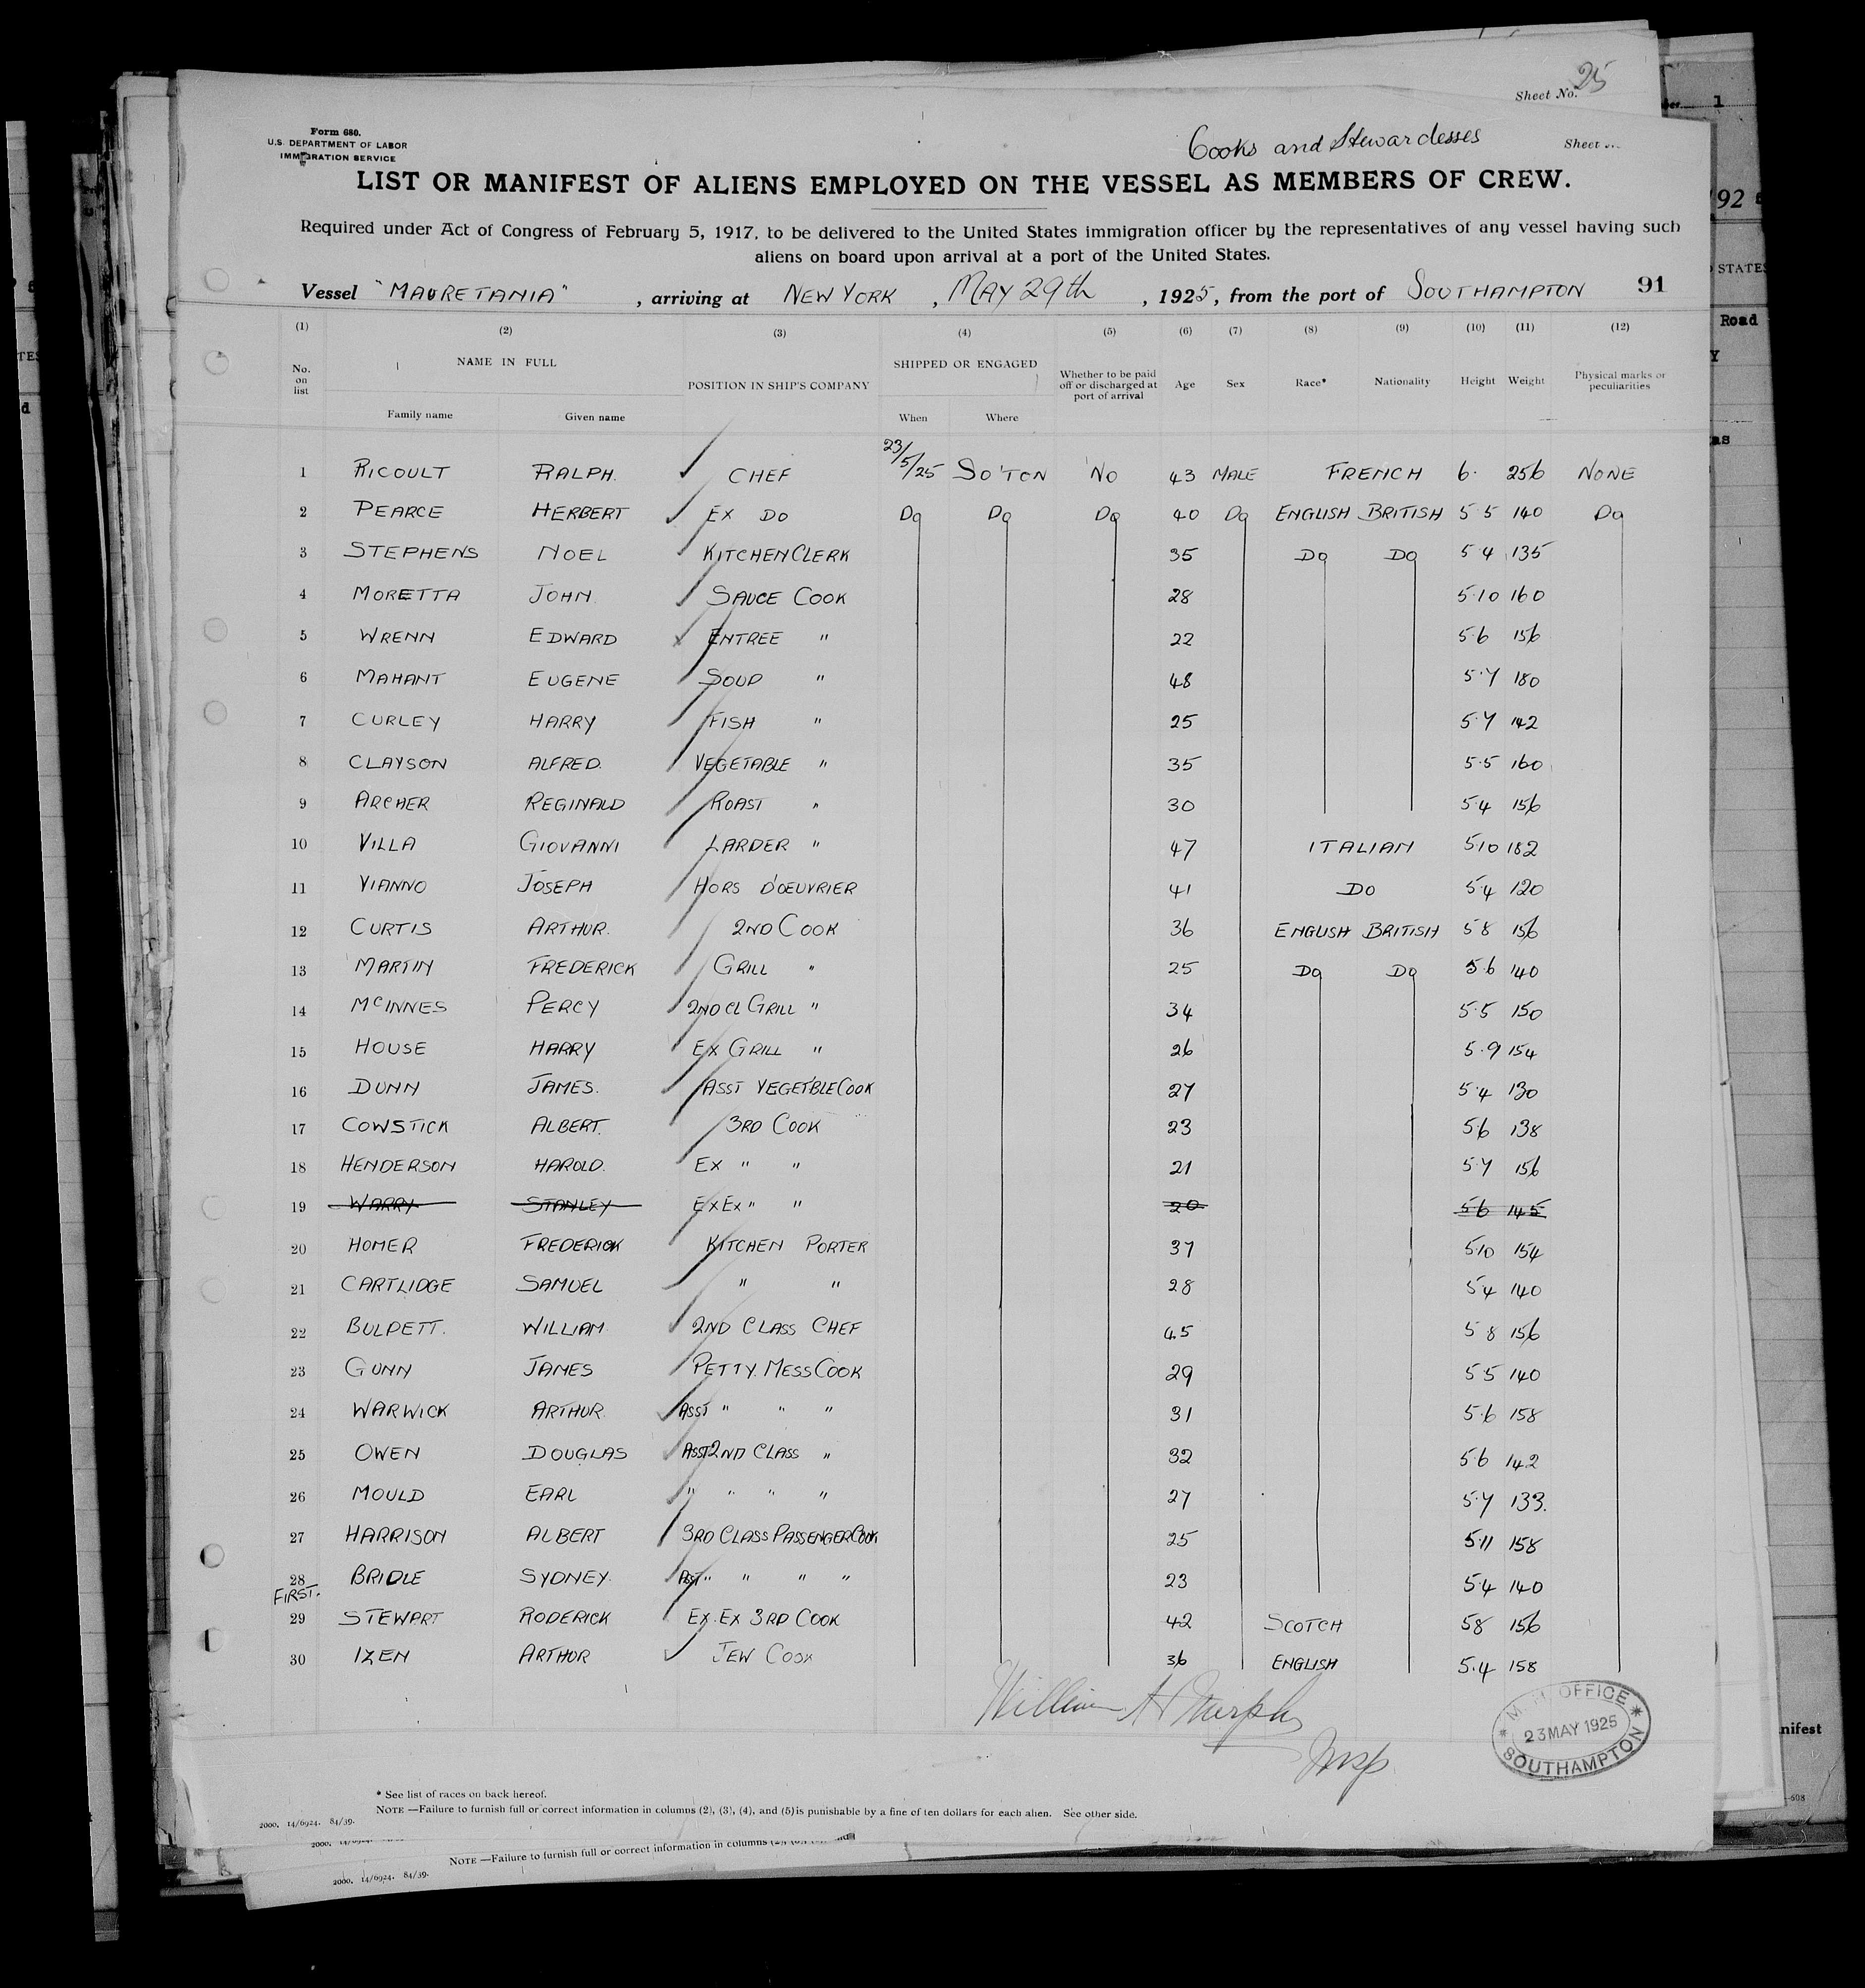 Sheet No. 25
1
Form 680.
U.S. DEPARTMENT OF LABOR
IMMIGRATION SERVICE
Cooks and Stewardesses
Sheet
LIST OR MANIFEST OF ALIENS EMPLOYED ON THE VESSEL AS MEMBERS OF CREW.
192
Required under Act of Congress of February 5, 1917, to be delivered to the United States immigration officer by the representatives of any vessel having such
aliens on board upon arrival at a port of the United States.
STATES
Vessel "MAURETANIA", arriving at NEW YORK, MAY 29th, 1925, from the port of SOUTHAMPTON 91
Road
(1) (2) (3) (4) (5) (6) (7) (8) (9) (10) (11) (12)
No. on list NAME IN FULL POSITION IN SHIP'S COMPANY SHIPPED OR ENGAGED Whether to be paid off or discharged at port of arrival Age Sex Race* Nationality Height Weight Physical marks or peculiarities
Family name Given name When Where
1 RICOULT RALPH. CHEF 23/5/25 SO'TON NO 43 MALE FRENCH 6· 256 NONE
2 PEARCE HERBERT EX DO Do Do Do 40 Do ENGLISH BRITISH 5 5 140 Do
3 STEPHENS NOEL KITCHEN CLERK 35 Do Do 5 4 135
4 MORETTA JOHN SAUCE COOK 28 5·10 160
5 WRENN EDWARD ENTREE " 22 5·6 156
6 MAHANT EUGENE SOUP " 48 5·7 180
7 CURLEY HARRY FISH " 25 5·7 142
8 CLAYSON ALFRED. VEGETABLE " 35 5·5 160
9 ARCHER REGINALD ROAST " 30 5·4 156
10 VILLA GIOVANNI LARDER " 47 ITALIAN 5 10 182
11 VIANNO JOSEPH HORS D'OEUVRIER 41 DO 5·4 120
12 CURTIS ARTHUR. 2ND COOK 36 ENGLISH BRITISH 5 8 156
13 MARTIN FREDERICK GRILL " 25 Do Do 5·6 140
14 McINNES PERCY 2ND CL GRILL " 34 5·5 150
15 HOUSE HARRY EX GRILL " 26 5·9 154
16 DUNN JAMES. ASST VEGET'BLE COOK 27 5·4 130
17 COWSTICK ALBERT. 3RD COOK 23 5·6 138
18 HENDERSON HAROLD. EX " " 21 5·7 156
19 WARRY STANLEY EX EX " " 20 5·6 145
20 HOMER FREDERICK KITCHEN PORTER 37 5·10 154
21 CARTLIDGE SAMUEL " " 28 5·4 140
22 BULPETT. WILLIAM 2ND CLASS CHEF 45 5 8 156
23 GUNN JAMES PETTY. MESS COOK 29 5 5 140
24 WARWICK ARTHUR. ASST " " " 31 5·6 158
25 OWEN DOUGLAS ASST 2ND CLASS " 32 5·6 142
26 MOULD EARL " " " " 27 5·7 133.
27 HARRISON ALBERT 3RD CLASS PASSENGER COOK 25 5·11 158
28 BRIDLE SYDNEY. ASST " " " " 23 5·4 140
FIRST.
29 STEWART RODERICK EX. EX 3RD COOK 42 SCOTCH 5 8 156
30 IZEN ARTHUR JEW COOK 36 ENGLISH 5·4 158
William H Murphy
Insp
OFFICE
23 MAY 1925
SOUTHAMPTON
nifest
* See list of races on back hereof.
NOTE —Failure to furnish full or correct information in columns (2), (3), (4), and (5) is punishable by a fine of ten dollars for each alien. See other side.
2000. 14/6924. 84/39.
NOTE —Failure to furnish full or correct information in columns
2000. 14/6924. 84/39.